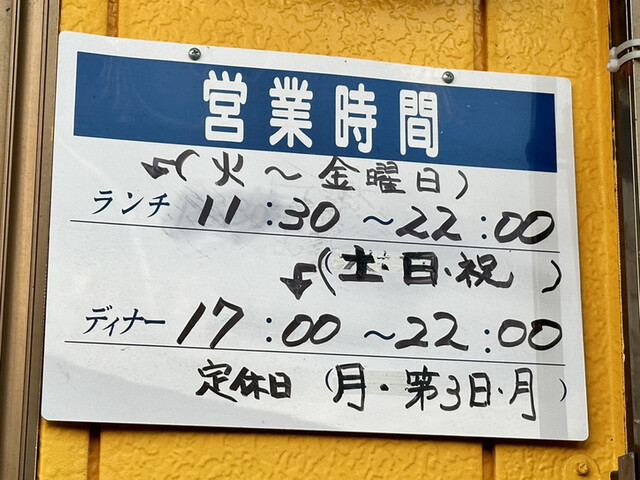 営業時間
(火～金曜日)
ランチ 11:30～22:00
(土・日・祝)
ディナー 17:00～22:00
定休日(月・第3日・月)